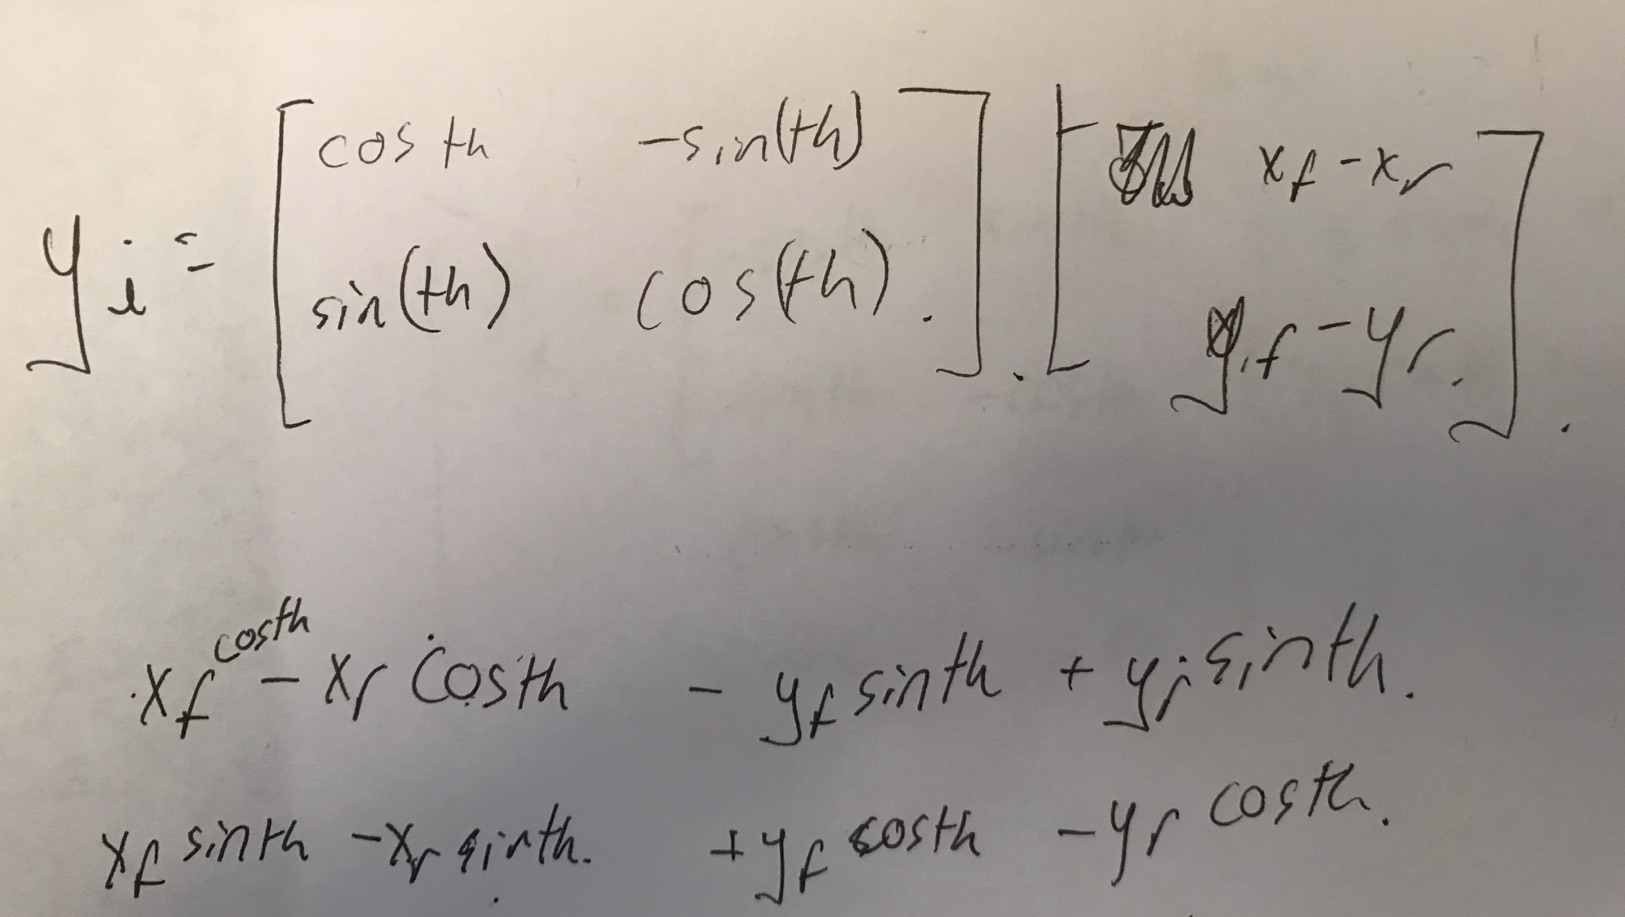 cos th -sin(th) x_f - x_r
y_i = sin(th) cos(th). . y_f - y_r. .
x_f costh - x_r costh - y_f sinth + y_r sinth.
x_f sinth - x_r sinth. + y_f costh - y_r costh.